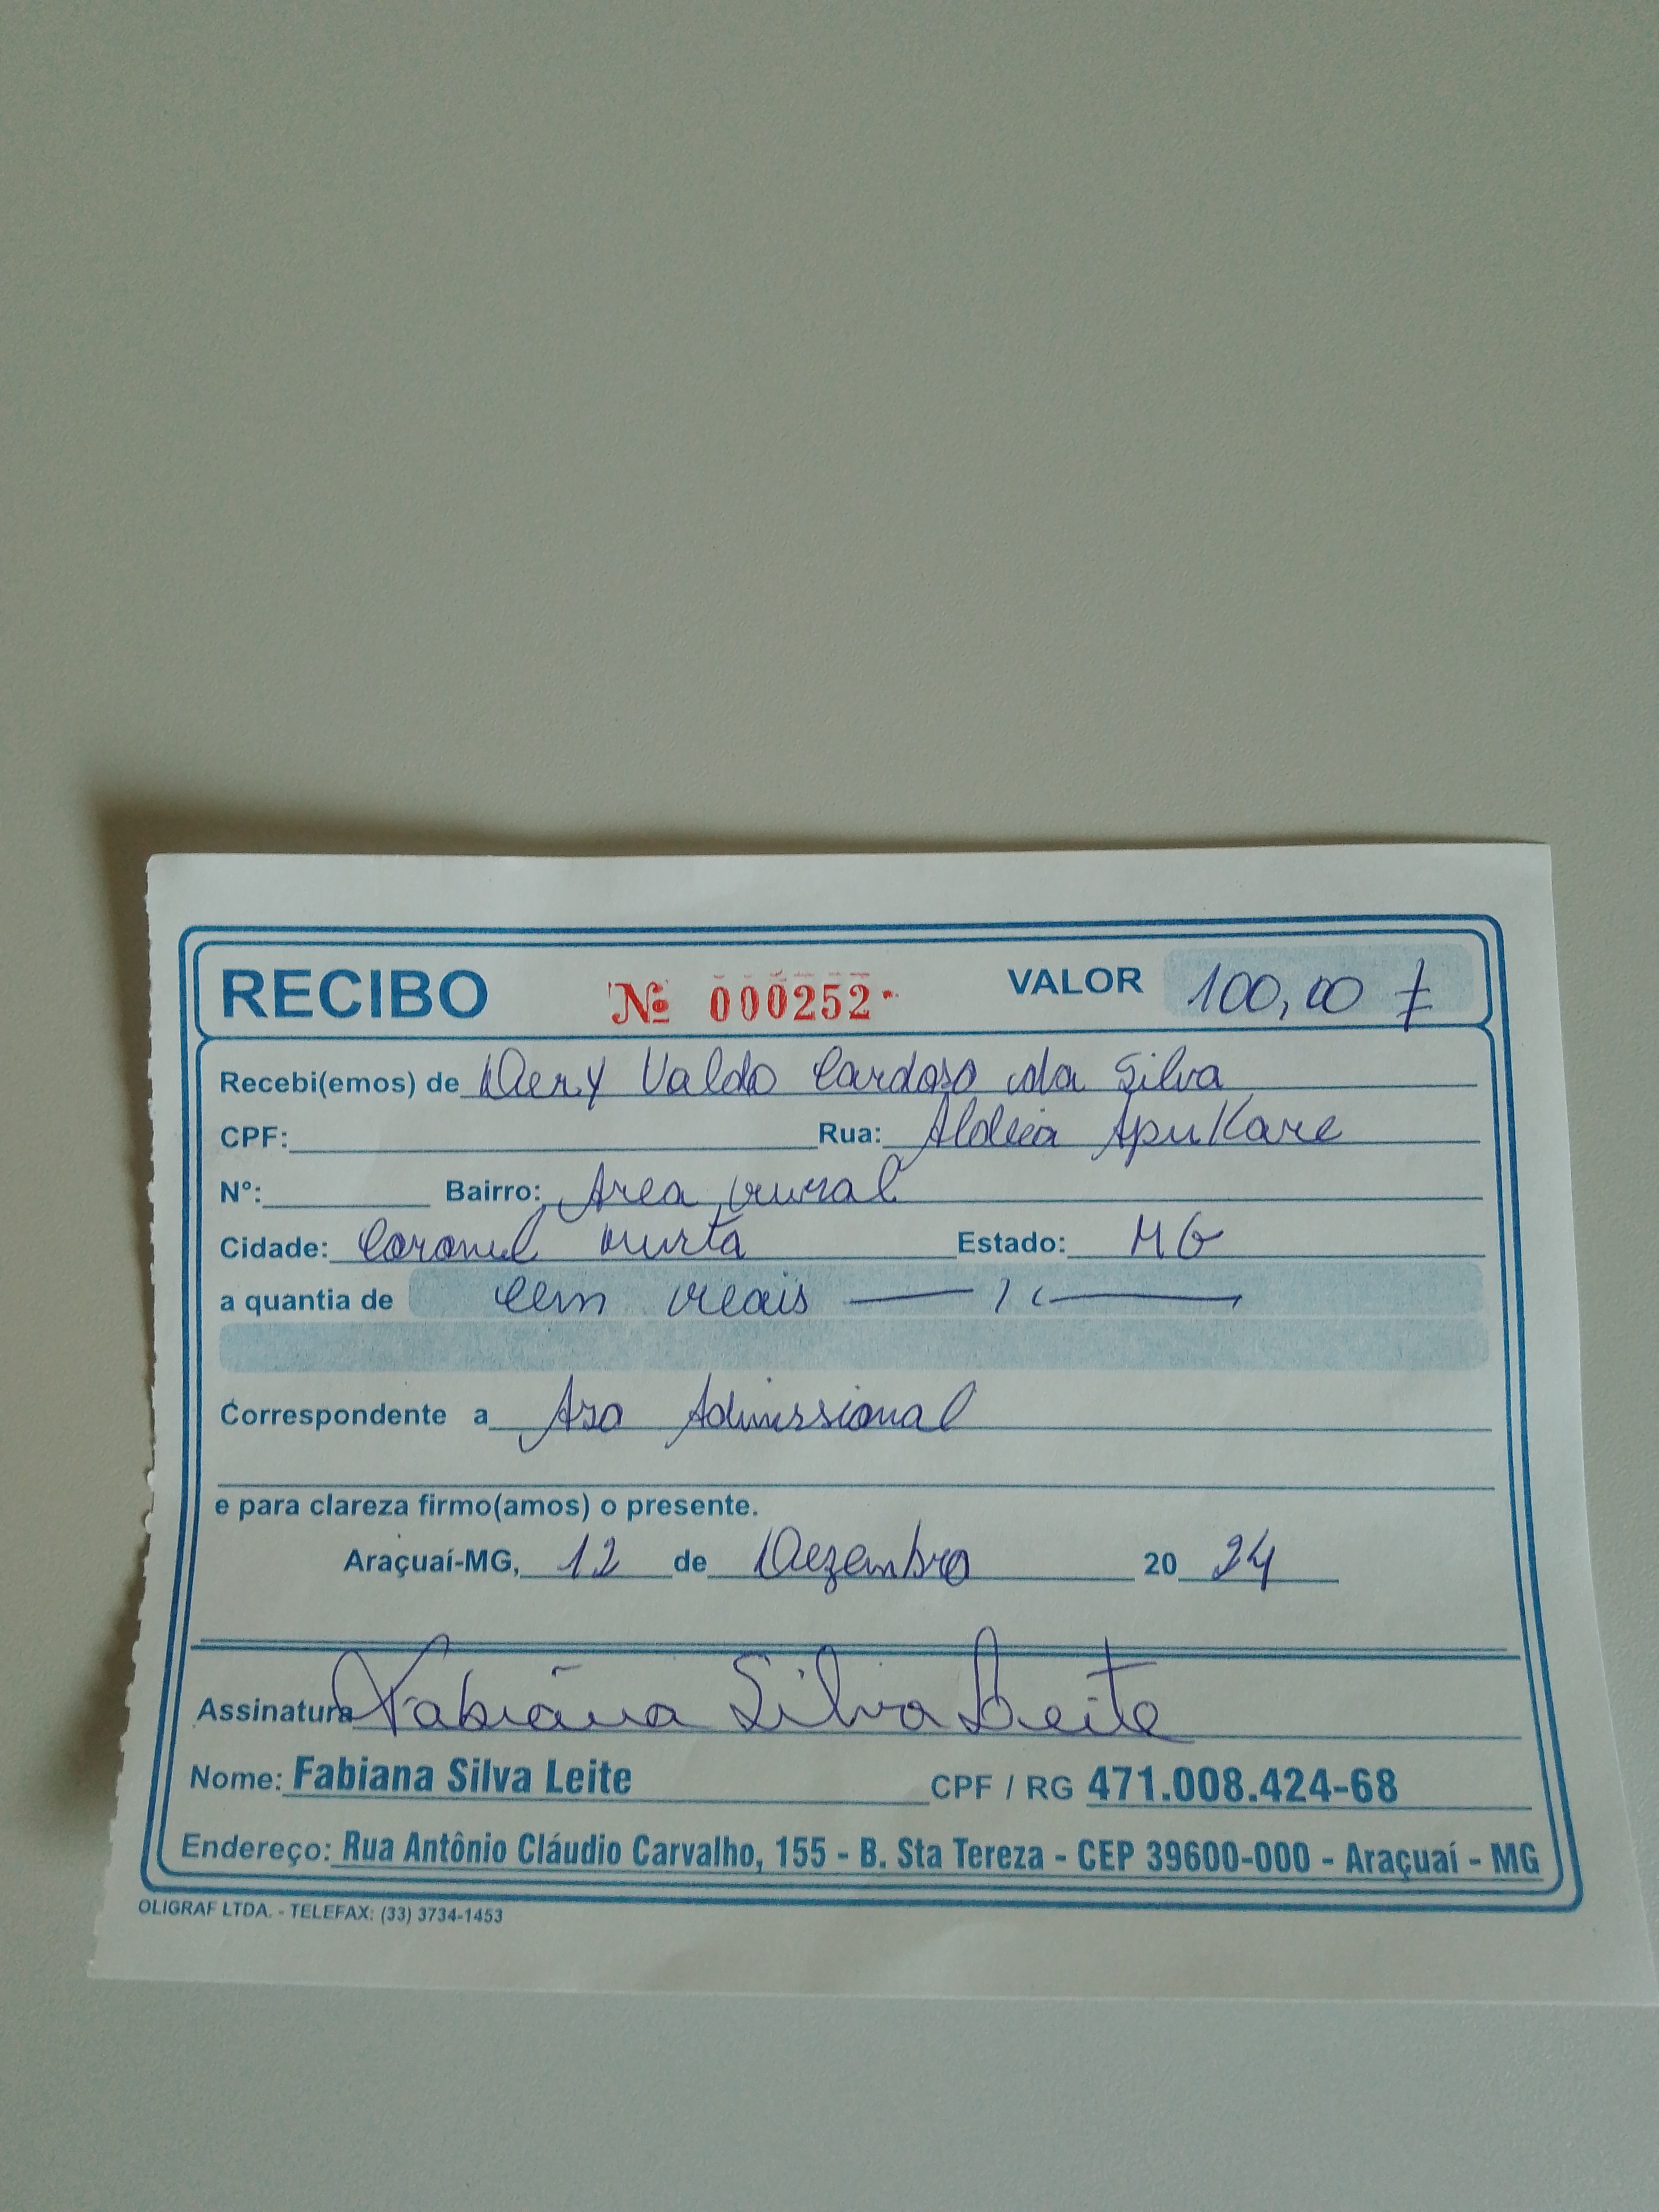 RECIBO Nº 000252 VALOR 100,00
Recebi(emos) de Dery Valdo Cardoso da Silva
CPF: Rua: Aldeia Apukare
Nº: Bairro: Area rural
Cidade: Coronel murta Estado: MG
a quantia de cem reais
Correspondente a Aso Admissional
e para clareza firmo(amos) o presente.
Araçuaí-MG, 12 de Dezembro 20 24
Assinatura Fabiana Silva Leite
Nome: Fabiana Silva Leite CPF / RG 471.008.424-68
Endereço: Rua Antônio Cláudio Carvalho, 155 - B. Sta Tereza - CEP 39600-000 - Araçuaí - MG
OLIGRAF LTDA. - TELEFAX: (33) 3734-1453